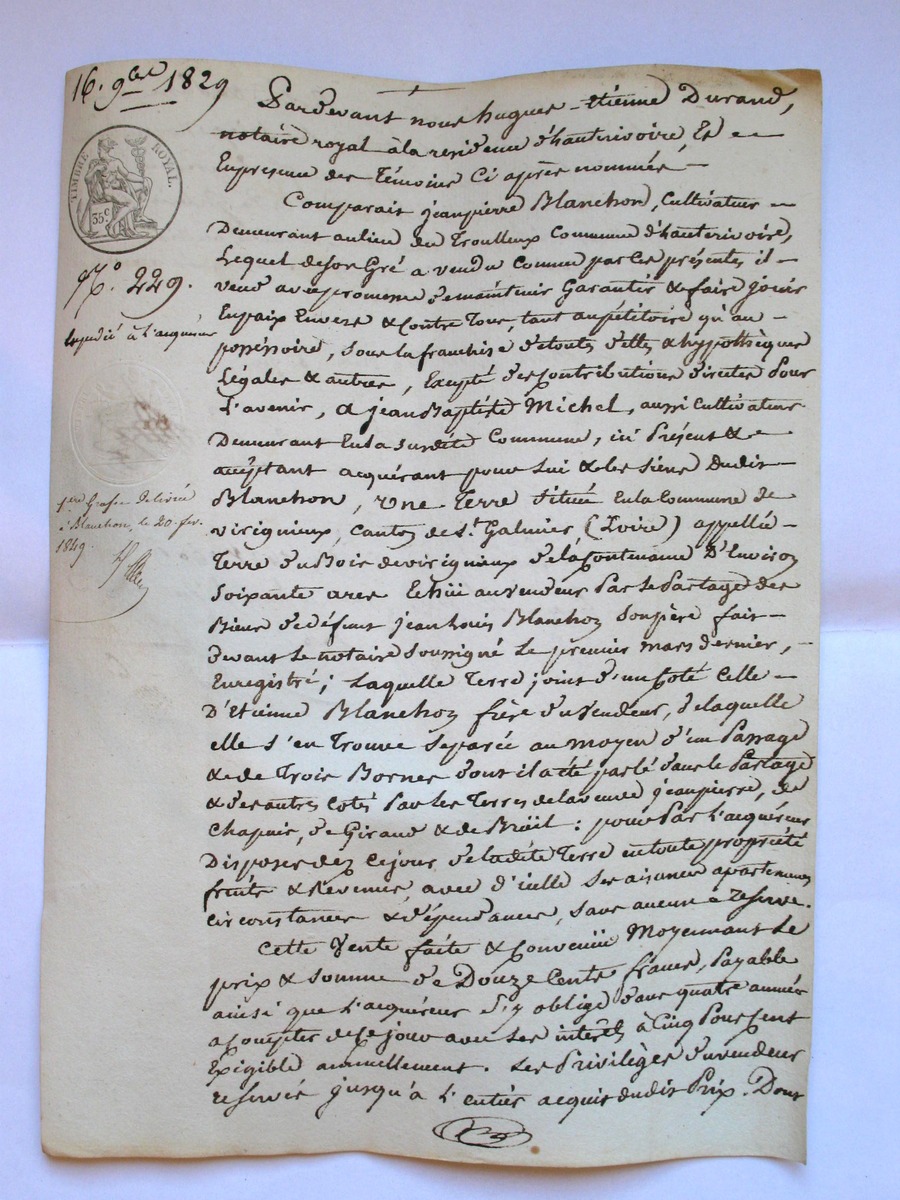 16. 9bre 1829
TIMBRE ROYAL.
35c
N.° 229.
Expédié à l'acquéreur
1ere Grosse délivrée
à Blanchon, le 20 fev.
1849.
Pardevant nous hugues-étienne Durand,
notaire royal à la residence d'hauterivoire, Et
En presence des Témoins Ci après nommés,
Comparait jeanpierre Blanchon, Cultivateur
Demeurant au lieu du Troulleux Commune d'hauterivoire,
Lequel de son Gré a vendu comme par ces présentes il
vend avec promesse de maintenir Garantir & faire jouir
En paix Envers & Contre Tous, tant au pétitoire qu'au
possessoire, sous la franchise de toutes dettes & hypothèques
Légales & autres, Excepté des Contributions directes Pour
L'avenir, à jean Baptiste Michel, aussi Cultivateur
Demeurant En la susdite Commune, ici Présent & 
acceptant acquérant pour lui & les siens dudit
Blanchon, Une Terre Située En la Commune de
virigneux, Canton de St. Galmier, (Loire) appellée
Terre du Bois de virigneux de la Contenance D'Environ
Soixante ares Echüe au vendeur Par le Partage des
Biens de défunt jean Louis Blanchon son père fait
devant le notaire soussigné le premier mars dernier,
Enregistré; laquelle Terre joint d'un Coté Celle
D'Etienne Blanchon frère du vendeur, de laquelle
elle s'en Trouve Separée au moyen d'un Passage
& de Trois Bornes dont il a été parlé dans le Partage
& des autres cotés Par les Terres de la veuve jeanpierre, de
Chapuis, de Giraud & de Brüil: pour Par l'acquéreur
Disposer dez ce jour de ladite Terre en toute propriété
fruits & Revenus, avec d'icelle ses aisances apartenances
circonstances & dépendances, sans aucune reserve.
Cette Vente faite & Convenüe Moyennant le
prix & somme de Douze Cents francs, Payable
ainsi que l'acquéreur s'y oblige dans quatre années
a Compter de ce jour avec les intérêts à Cinq Pour Cent
Exigible annuellement. les Privilèges du vendeur
reservés jusqu'à l'entier acquit dudit Prix. Dont